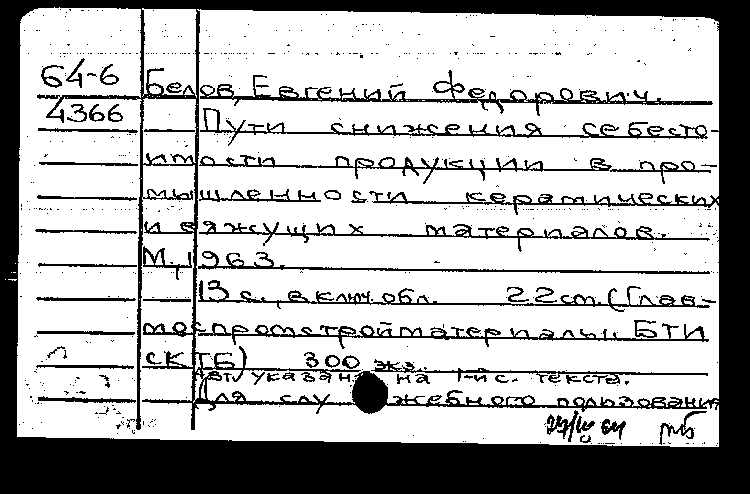 64-6 Белов, Евгений Федорович.
4366 Пути снижения себесто-
имости продукции в про-
мышленности керамических
и вяжущих материалов.
М., 1963.
13 с., включ. обл. 22 см. (Глав-
моспромстройматериалы. БТИ
СКТБ) 300 экз.
Авт. указан на 1-й с. текста.
Для служебного пользования